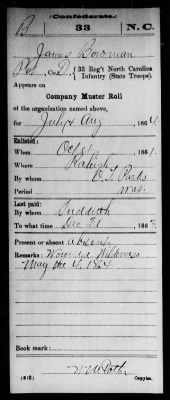 (Confederate.)
B 33 N.C.
James Bowman
Pvt, Co. D, 33 Reg't North Carolina
Infantry (State Troops).
Appears on
Company Muster Roll
of the organization named above,
for July & Aug, 1864
Enlisted:
When Oct 1, 1861.
Where Raleigh
By whom
Period War.
Last paid:
By whom Sudderth
To what time Dec 31, 1863.
Present or absent absent
Remarks: Wounded Wilderness
May the 6, 1864
Book mark:
(642) Copyist.